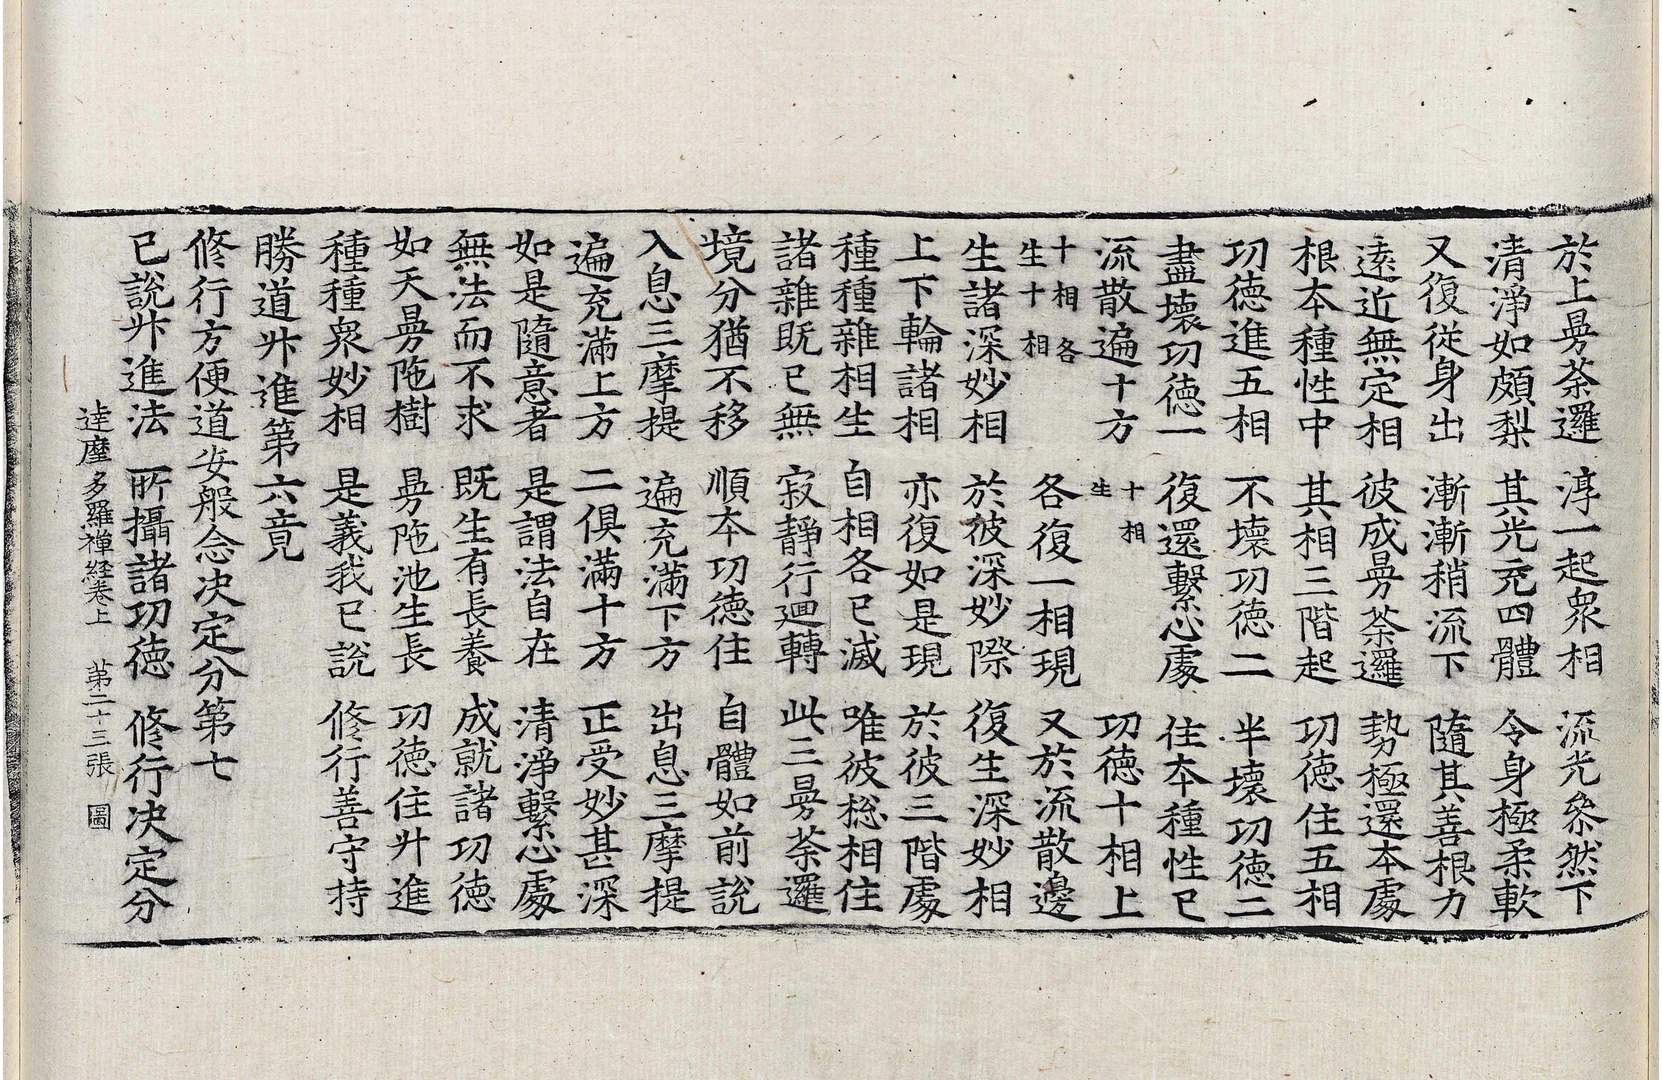 於上曼荼邏　淳一起衆相　流光叅然下
清淨如頗梨　其光充四體　令身極柔軟
又復從身出　漸漸稍流下　隨其善根力
遠近無定相　彼成曼荼邏　勢極還本處
根本種性中　其相三階起　功德住五相
功德進五相　不壞功德二　半壞功德二
盡壞功德一　復還繫心處　住本種性已
流散遍十方　十相生　功德十相上
十相各生十相　各復一相現　又於流散邊
生諸深妙相　於彼深妙際　復生深妙相
上下輪諸相　亦復如是現　於彼三階處
種種雜相生　自相各已滅　唯彼㧾相住
諸雜既已無　寂靜行廻轉　此三曼荼邏
境分猶不移　順本功德住　自體如前說
入息三摩提　遍充滿下方　出息三摩提
遍充滿上方　二俱滿十方　正受妙甚深
如是隨意者　是謂法自在　清淨繫心處
無法而不求　既生有長養　成就諸功德
如天曼陁樹　曼陁池生長　功德住升進
種種衆妙相　是義我已說　修行善守持
勝道升進第六竟
修行方便道安般念決定分第七
已說升進法　所攝諸功德　修行決定分
達摩多羅禪經卷上　第二十三張　圖